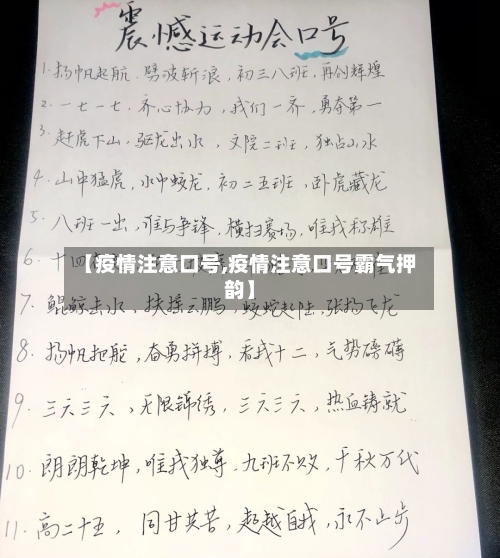 震憾运动会口号
1. 扬帆起航, 劈波斩浪, 初三八班, 再创辉煌
2. 一七一七, 齐心协力, 我们一齐, 勇夺第一
3. 赶虎下山, 驱龙出水, 文院二班, 独占山水
4. 山中猛虎, 水中蛟龙, 初二五班, 卧虎藏龙
5. 八班一出, 谁与争锋, 横扫赛场, 唯我称雄
6. 十四
【疫情注意口号,疫情注意口号霸气押
韵】
7. 鲲鲸击水, 扶摇云鹏, 蛟蛇起陆, 张扬飞龙
8. 扬帆把舵, 奋勇拼搏, 看我十二, 气势磅礴
9. 三六三六, 无限锦绣, 三六三六, 热血铸就
10. 朗朗乾坤, 唯我独尊, 九班不败, 千秋万代
11. 高二十五, 同甘共苦, 超越自我, 永不止步